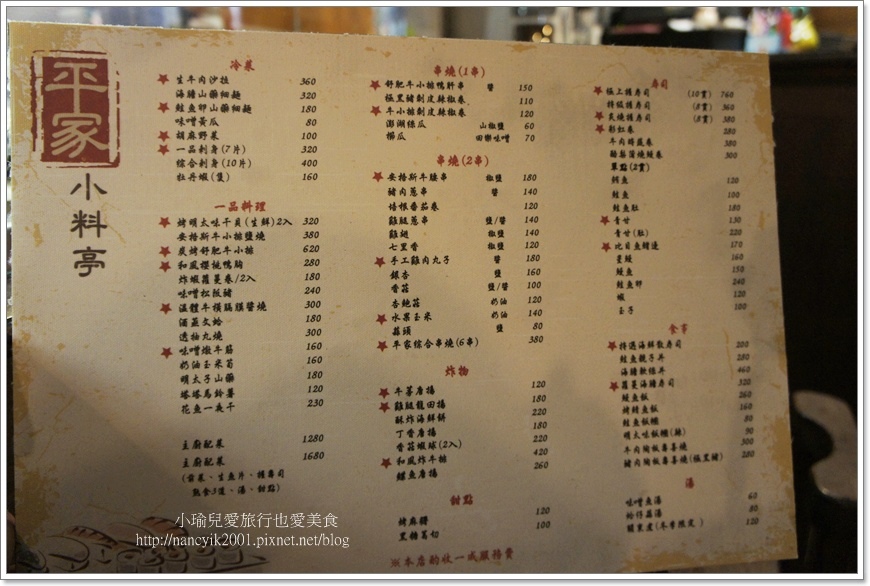 平家
小料亭
冷菜
生牛肉沙拉 360
海膽山藥細麵 320
鮭魚卵山藥細麵 180
味噌黃瓜 80
胡麻野菜 100
一品刺身(7片) 320
綜合刺身(10片) 400
牡丹蝦(隻) 160
一品料理
烤明太味干貝(生鮮)2入 320
安格斯牛小排鹽燒 380
炭烤舒肥牛小排 620
和風櫻桃鴨胸 280
炸蝦蘿蔓卷/2入 180
味噌松阪豬 240
溫體牛橫膈膜醬燒 300
酒蒸文蛤 180
透抽丸燒 300
味噌燉牛筋 160
奶油玉米筍 160
明太子山藥 180
塔塔馬鈴薯 120
花魚一夜干 230
主廚配菜 1280
主廚配菜 1680
(前菜、生魚片、握壽司
熟食3道、湯、甜點)
串燒(1串)
舒肥牛小排鴨肝串 醬 150
極黑豬剝皮辣椒卷 110
牛小排剝皮辣椒卷 120
澎湖絲瓜 山椒鹽 60
櫛瓜 田樂味噌 70
串燒(2串)
安格斯牛腱串 椒鹽 180
豬肉蔥串 醬 140
培根番茄卷 140
雞腿蔥串 鹽/醬 120
雞翅 椒鹽 120
七里香 椒鹽 120
手工雞肉丸子 醬 180
銀杏 鹽 160
香菇 鹽/醬 100
杏鮑菇 奶油 120
水果玉米 奶油 140
蒜頭 鹽 80
平家綜合串燒(6串) 380
炸物
牛蒡唐揚 120
雞腿龍田揚 180
酥炸海鮮餅 220
丁香唐揚 180
香菇蝦球(2入) 220
和風炸牛排 420
鰈魚唐揚 260
甜點
烤麻糬 120
黑糖葛切 100
※本店酌收一成服務費
壽司
極上握壽司 (10貫) 760
特級握壽司 (8貫) 360
炙燒握壽司 (8貫) 380
彩虹卷 280
牛肉蒔蔬卷 300
酪梨蒲燒鰻卷 300
單點(2貫)
鯛魚 120
鮭魚 100
鮭魚肚 180
青甘 130
青甘(肚) 220
比目魚鰭邊 170
星鰻 160
鰻魚 150
鮭魚卵 240
蝦 120
玉子 100
食事
特選海鮮散壽司 200
鮭魚親子丼 280
海膽軟絲丼 460
蘿蔓海膽壽司 320
鰻魚飯 260
烤鯖魚飯 160
鮭魚飯糰 80
明太味飯糰(辣) 90
牛肉陶板壽喜燒 300
豬肉陶板壽喜燒(極黑豬) 280
湯
味噌魚湯 60
蛤仔蒜湯 80
關東煮(冬季限定) 120
小瑜兒愛旅行也愛美食
http://nancyik2001.pixnet.net/blog